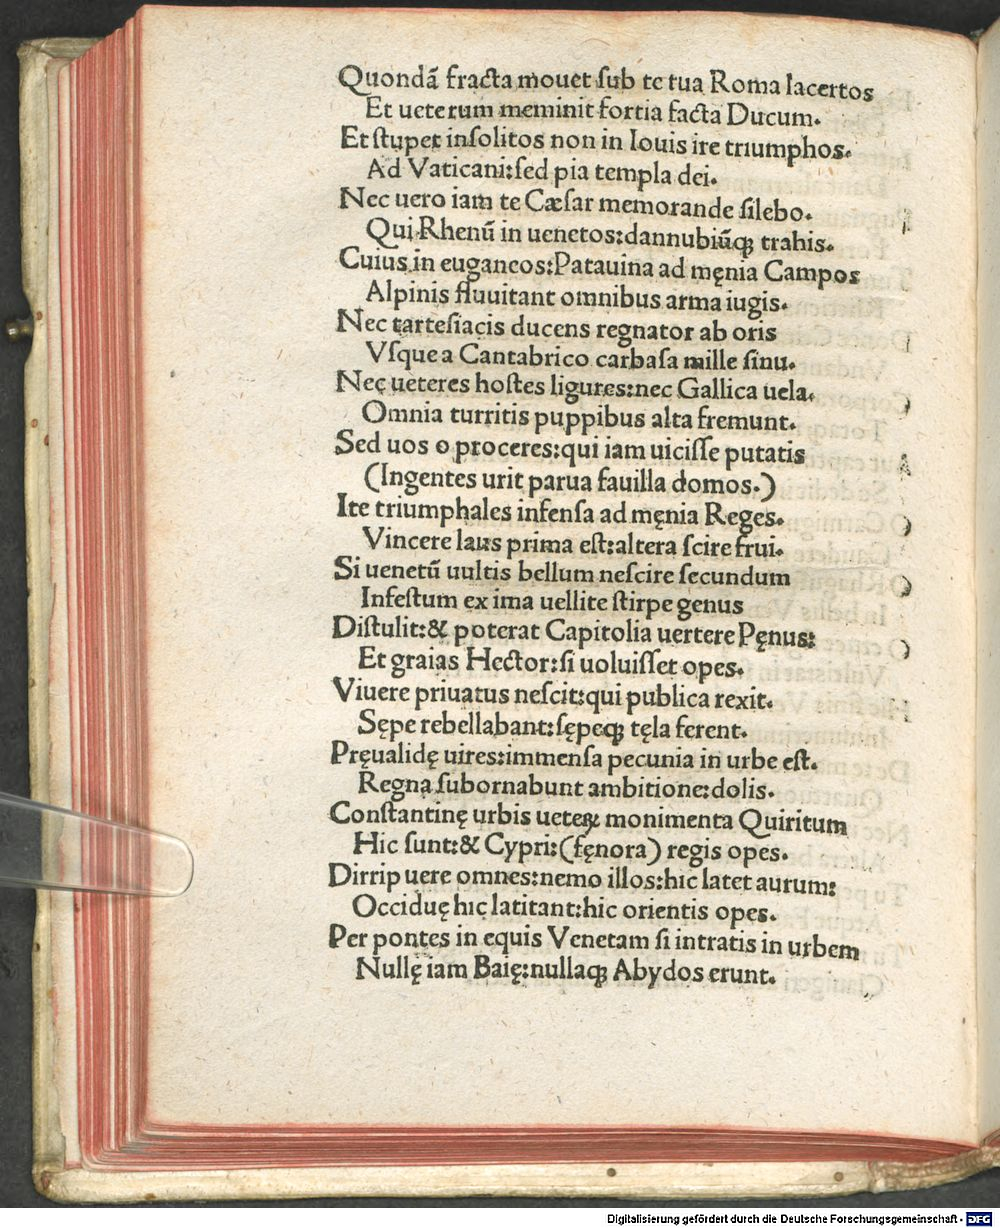 Quondā fracta mouet ſub te tua Roma lacertos
Et ueterum meminit fortia facta Ducum.
Et ſtupet inſolitos non in Iouis ire triumphos.
Ad Vaticani:ſed pia templa dei.
Nec uero iam te Cæſar memorande ſilebo.
Qui Rhenū in uenetos:dannubiūq; trahis.
Cuius in euganeos:Patauina ad męnia Campos
Alpinis fluuitant omnibus arma iugis.
Nec tarteſiacis ducens regnator ab oris
Vſque a Cantabrico carbaſa mille ſinu.
Nec ueteres hoſtes ligures:nec Gallica uela.
Omnia turritis puppibus alta fremunt.
Sed uos o proceres:qui iam uiciſſe putatis
(Ingentes urit parua fauilla domos.)
Ite triumphales infenſa ad męnia Reges.
Vincere laus prima eſt:altera ſcire frui.
Si uenetū uultis bellum neſcire ſecundum
Infeſtum ex ima uellite ſtirpe genus
Diſtulit:& poterat Capitolia uertere Pęnus:
Et graias Hector:ſi uoluiſſet opes.
Viuere priuatus neſcit:qui publica rexit.
Sępe rebellabant:ſępeq; tęla ferent.
Pręualidę uires:immenſa pecunia in urbe eſt.
Regna ſubornabunt ambitione:dolis.
Conſtantinę urbis ueteꝝ monimenta Quiritum
Hic ſunt:& Cypri:(fęnora) regis opes.
Dirrip uere omnes:nemo illos:hic latet aurum:
Occiduę hic latitant:hic orientis opes.
Per pontes in equis Venetam ſi intratis in urbem
Nullę iam Baię:nullaq; Abydos erunt.
Digitalisierung gefördert durch die Deutsche Forschungsgemeinschaft - DFG